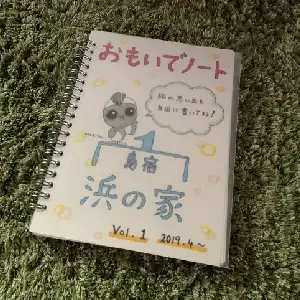 おもいでノート
旅の思い出を
自由に書いてね！
島宿
浜の家
Vol.1 2019.4～